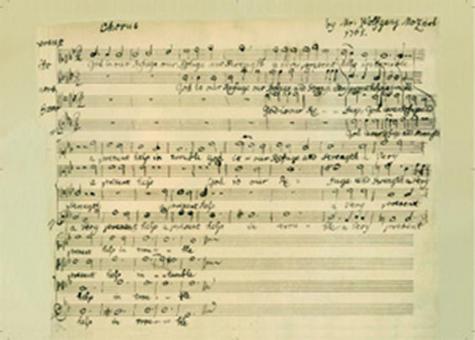 Chorus
by Mr. Wolfgang Mozart
1765.
God is our Refuge our Refuge and Strength a very present help in trouble
God is our Refuge our Refuge and
God is our Re - fuge God
God is our Refuge and Strength
a present help in trouble God is our Refuge and Strength, Very
a present help God is our Re - fuge and Strength a very
Strength present help a very present
a very present help a present help in trou - ble a very present
present help in trou - ble
present help in trouble
help in trou - ble
help in trou - ble